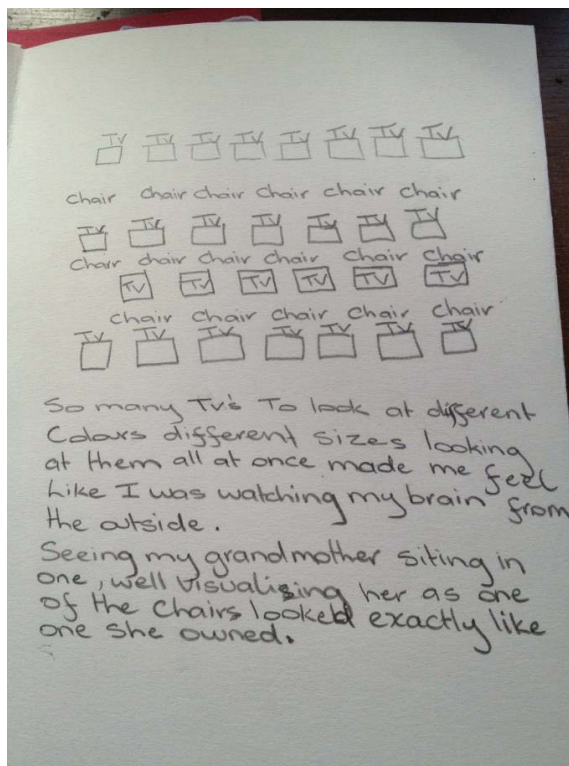 TV TV TV TV TV TV TV
Chair Chair Chair Chair Chair Chair
TV TV TV TV TV TV TV
Chair chair Chair Chair Chair Chair
TV TV TV TV TV TV
Chair Chair Chair Chair Chair
TV TV TV TV TV TV TV
So many TV's To look at different
Colours different sizes looking
at them all at once made me feel
Like I was watching my brain from
the outside.
Seeing my grandmother siting in
one, well visualising her as one
of the Chairs looked exactly like
one she owned.